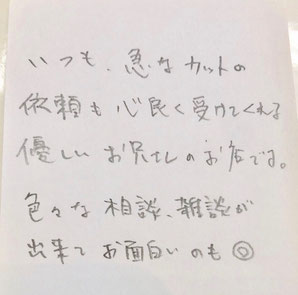 いつも、急なカットの
依頼も心良く受けてくれる
優しいお兄さんのお店です。
色々な相談、雑談が
出来てお面白いのも◎